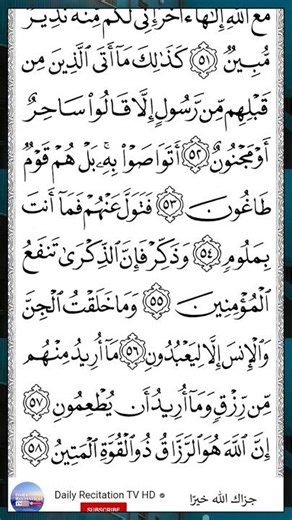 مَعَ ٱللَّهِ إِلَٰهًا ءَاخَرَ إِنِّى لَكُم مِّنْهُ نَذِيرٌ
مُّبِينٌ ۝٥١ كَذَٰلِكَ مَآ أَتَى ٱلَّذِينَ مِن
قَبْلِهِم مِّن رَّسُولٍ إِلَّا قَالُوا۟ سَاحِرٌ
أَوْ مَجْنُونٌ ۝٥٢ أَتَوَاصَوْا۟ بِهِۦ ۚ بَلْ هُمْ قَوْمٌ
طَاغُونَ ۝٥٣ فَتَوَلَّ عَنْهُمْ فَمَآ أَنتَ
بِمَلُومٍ ۝٥٤ وَذَكِّرْ فَإِنَّ ٱلذِّكْرَىٰ تَنفَعُ
ٱلْمُؤْمِنِينَ ۝٥٥ وَمَا خَلَقْتُ ٱلْجِنَّ
وَٱلْإِنسَ إِلَّا لِيَعْبُدُونِ ۝٥٦ مَآ أُرِيدُ مِنْهُم
مِّن رِّزْقٍ وَمَآ أُرِيدُ أَن يُطْعِمُونِ ۝٥٧
إِنَّ ٱللَّهَ هُوَ ٱلرَّزَّاقُ ذُو ٱلْقُوَّةِ ٱلْمَتِينُ ۝٥٨
Daily Recitation TV HD
جزاك الله خيرًا
SUBSCRIBE